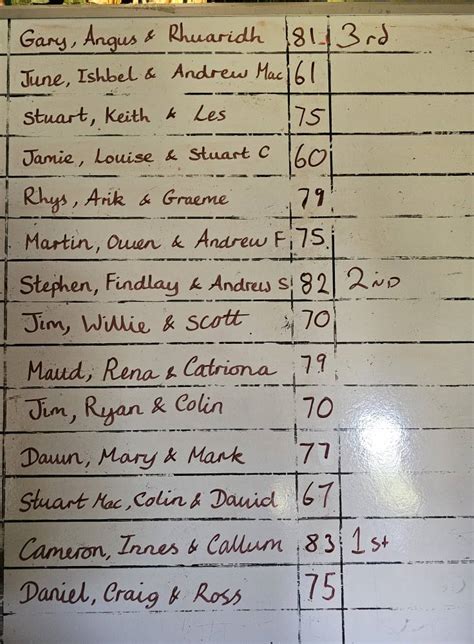 Gary, Angus & Rhuaridh 81 3rd
June, Ishbel & Andrew Mac 61
Stuart, Keith & Les 75
Jamie, Louise & Stuart C 60
Rhys, Arik & Graeme 79
Martin, Owen & Andrew F 75
Stephen, Findlay & Andrew S 82 2ND
Jim, Willie & Scott 70
Maud, Rena & Catriona 79
Jim, Ryan & Colin 70
Dawn, Mary & Mark 77
Stuart Mac, Colin & David 67
Cameron, Innes & Callum 83 1st
Daniel, Craig & Ross 75